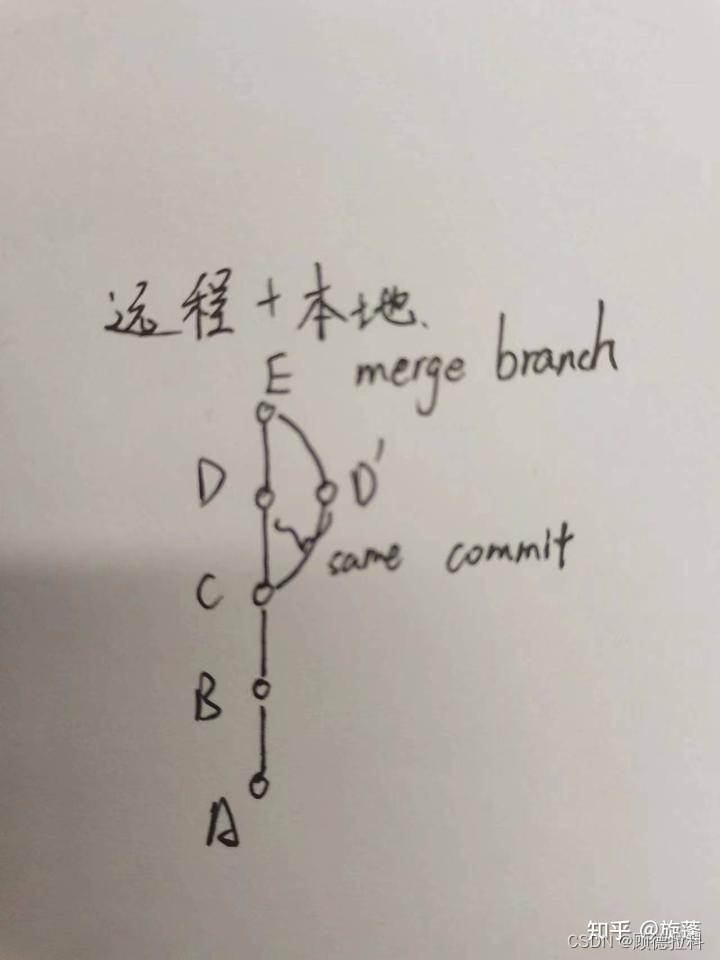 远程+本地.
E merge branch
D D'
same commit
C
B
A
知乎 @旋蓬
CSDN @顾德拉科